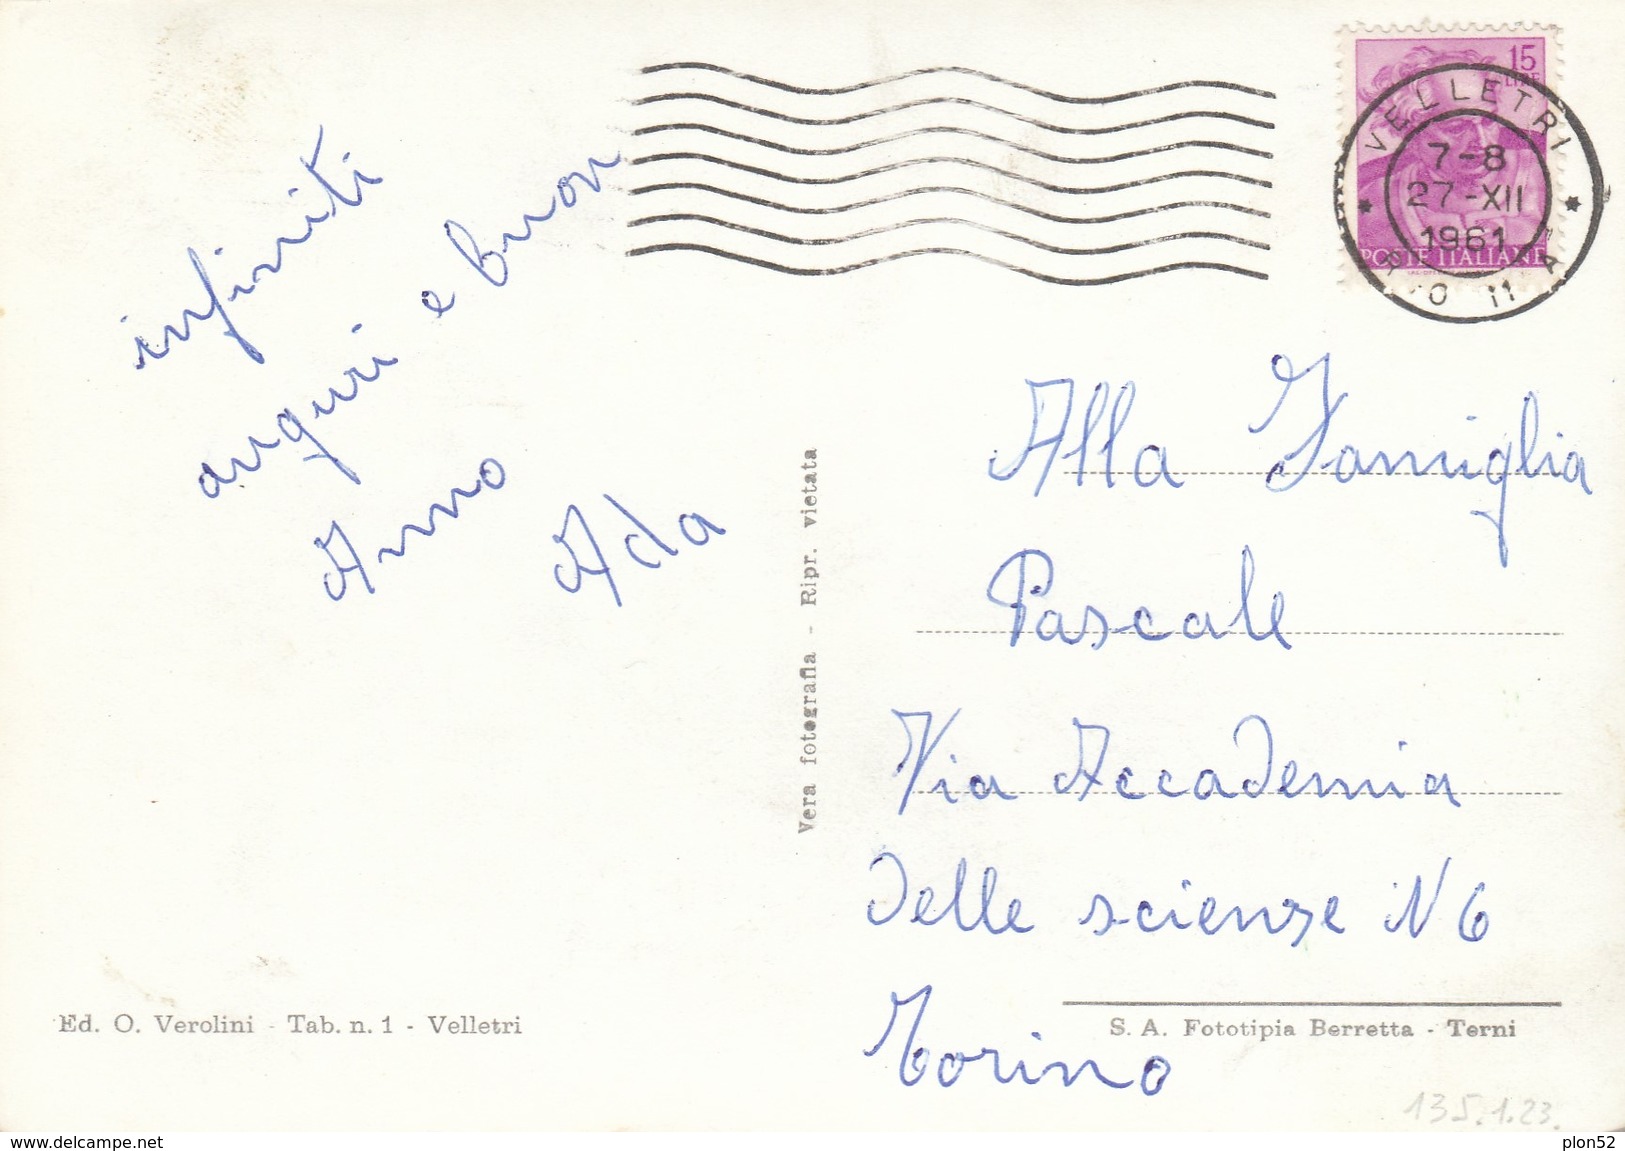 infiniti
auguri e buon
Anno
Ada
Vera fotografia - Ripr. vietata
Ed. O. Verolini - Tab. n. 1 - Velletri
15
LIRE
POSTE ITALIANE
VELLETRI
7-8
27-XII
1961
Alla Famiglia
Pascale
Via Accademia
delle scienze N 6
Torino
S. A. Fototipia Berretta - Terni
135.1.23.
www.delcampe.net
plon52